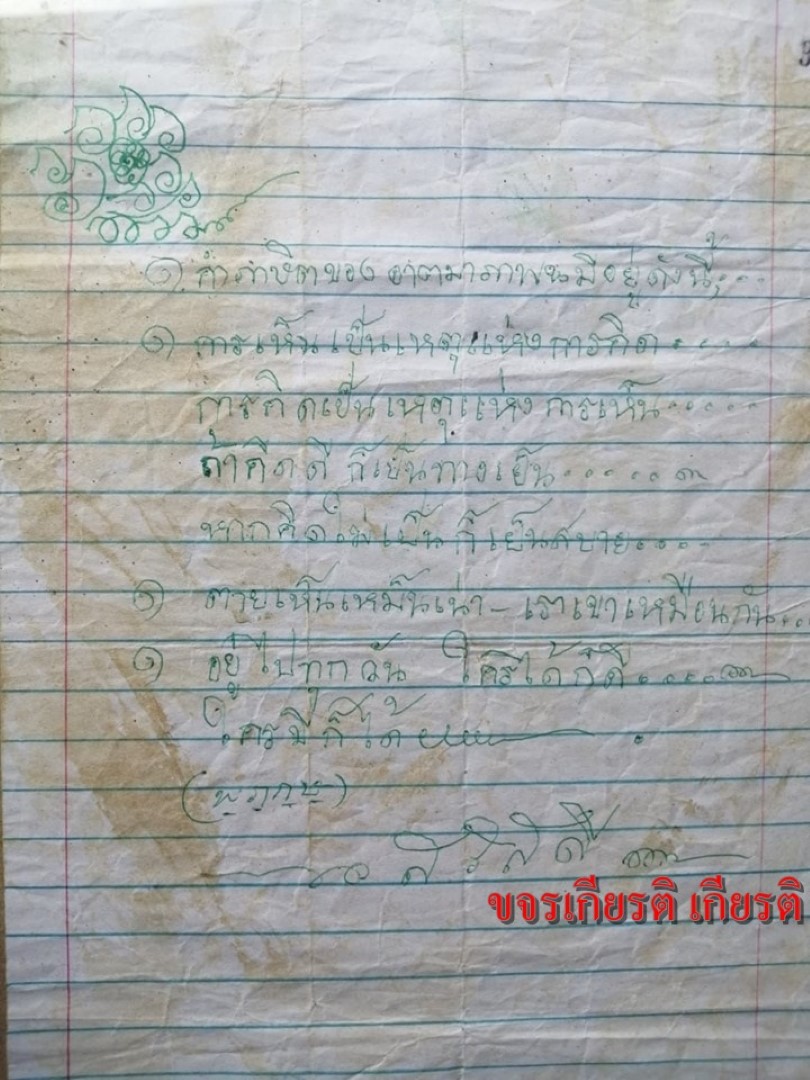 3
ธรรม
๑ คำภาษิตของ อาตมาภาพนมีอยู่ดังนี้;..
๑ การเห็นเป็นเหตุแห่งการคิด....
การคิดเป็นเหตุแห่งการเห็น.....
ถ้าคิดดี ก็เป็นทางเย็น.....๓
หากคิดไม่เป็น ก็เย็นสบาย....
๑ ตายเห็นเหม็นเน่า - เราเขาเหมือนกัน...
๑ อยู่ไปทุกวัน ใครได้ก็ดี....
ใครมีก็ได้ .
สิริสดี
ขจรเกียรติ เกียรติ